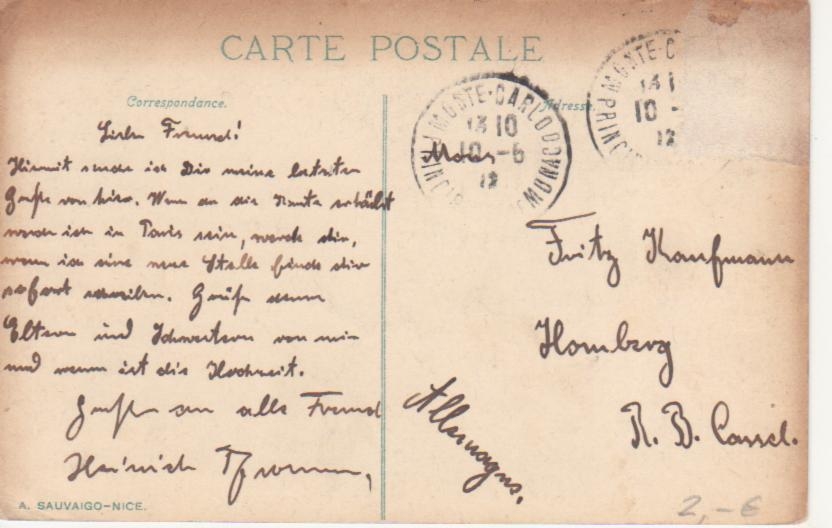 CARTE POSTALE
Correspondance.
Adresse.
MONTE-CARLO
13 10
10 -6
12
MONACO
MONTE-C
13 1
10 -
12
PRINCI
Liebe Freund!
Hiermit sende ich Dir meine letzten
Grüße von hier. Wenn du die Karte erhälst
werde ich in Paris sein, werde dir,
wenn ich eine neue Stelle finde dir
sofort schreiben. Grüße deine
Eltern und Schwestern von mir
und wann ist die Hochzeit.
Grüße an alle Freund
Heinrich
Fritz Kaufmann
Homberg
R. B. Cassel.
Allemagne.
A. SAUVAIGO-NICE.
2,-€